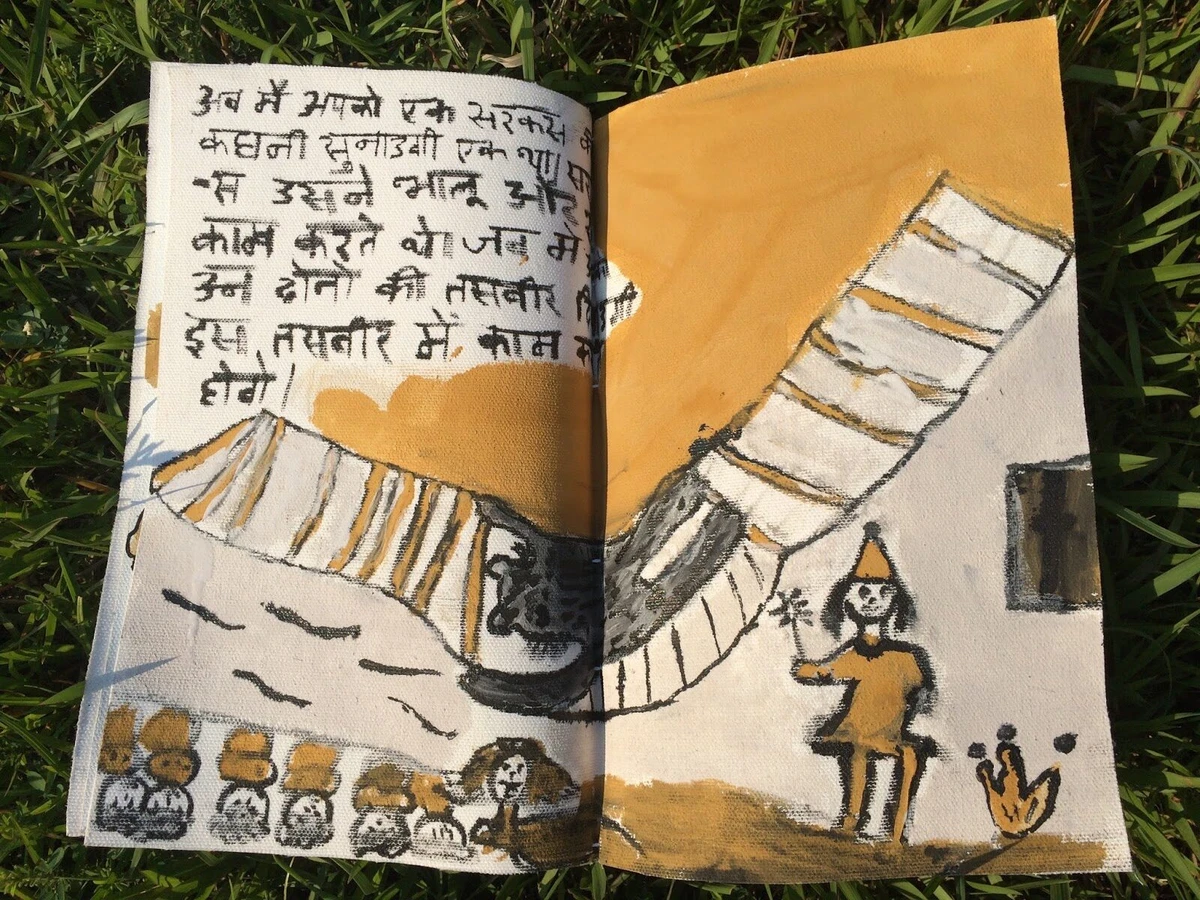 अब में अपको एक सरकस
कघनी सुनाउगी एक था।
स उसने भालू और
काम करते थे। जब में
उन दोनो की तसवीर
इस तसवीर में काम
होगे।